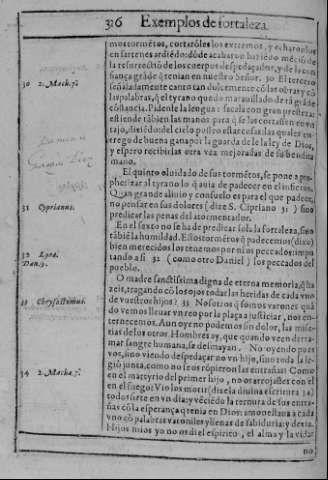 316 Exemplos de fortaleza.
mos tormẽtos, cortarõles los extremos, y echarõlos
en sartenes ardiẽdo: dõde acabaron haziẽdo mẽciõ de
la resurrectiõ de los cuerpos despedaçados, y de la con
fiança grãde q̃ tenian en nuestro Señor. 30 El tercero
30 2. Mach. 7.
señaladamente canto tan dulcemente cõ las obras y cõ
las palabras, q̃ el tyrano quedo marauillado de tã grãde
cõstancia. Pidenle la lengua: sacala con gran presteza:
estiende tãbien las manos para q̃ se las corten
tajo, diziẽdo: del cielo posseo estas cosas, las quales en-
trego de buena gana por la guarda de la ley de Dios,
y espero recibirlas otra vez mejoradas de su bendita
mano.
El quinto oluidado de sus tormẽtos, se pone a pro-
phetizar al tyrano lo q̃ auia de padecer en el infierno.
Quan grande aliuio y consuelo es para el que padece,
no pensar en sus dolores (dize S. Cipriano 31) sino
31 Cyprianus.
predicar las penas del atormentador.
En el sexto no se ha de predicar sola la fortaleza, sino
tãbiẽ la humildad. Estos tormẽtos q̃ padecemos (dixo)
bien merecidos los tenemos por nĩos peccados: impu
tando a si 32 (como otro Daniel) los peccados del
32
Dan. 9.
pueblo.
O madre sanctissima digna de eterna memoria, q̃ ha
zeis, tragando cõ los ojos todas las heridas de cada vno
de vuestros hijos? 33 Nosotros q̃ somos varones quã
33 Chrysostomus.
do vemos lleuar vn reo por la plaça a justiciar, nos en-
ternecemos. Aun oy e no podemos sin dolor, las mise-
rias de los otros. Hombres ay, que quando veen derra-
mar sangre humana, se desmayan. No oyendo pues
vos, sino viendo despedaçar no vn hijo, sino toda la le-
giõ junta, como no se os rõpieron las entrañas? Como
en el martyrio del primer hijo, no os arrojastes con el
en el fuego? Vio los morir (dize la diuina escritura 34)
34 2. Macha. 7.
todos siete en vn dia: y vẽciẽdo la ternura de sus entra-
ñas cõ la esperança q̃ tenia en Dios: amonestaua a cada
vno cõ palabras varoniles y llenas de sabiduria: y dezia.
Hijos mios yo no os di el espiritu, el alma y la vida:
no